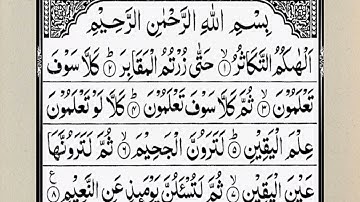 بِسْمِ اللهِ الرَّحْمٰنِ الرَّحِيْمِ
اَلْهٰىكُمُ التَّكَاثُرُ ۙ﴿۱﴾ حَتّٰى زُرْتُمُ الْمَقَابِرَ ؕ﴿۲﴾ كَلَّا سَوْفَ
تَعْلَمُوْنَ ۙ﴿۳﴾ ثُمَّ كَلَّا سَوْفَ تَعْلَمُوْنَ ؕ﴿۴﴾ كَلَّا لَوْ تَعْلَمُوْنَ
عِلْمَ الْيَقِيْنِ ؕ﴿۵﴾ لَتَرَوُنَّ الْجَحِيْمَ ۙ﴿۶﴾ ثُمَّ لَتَرَوُنَّهَا
عَيْنَ الْيَقِيْنِ ۙ﴿۷﴾ ثُمَّ لَتُسْـَٔلُنَّ يَوْمَىِٕذٍ عَنِ النَّعِيْمِ ﴿۸﴾ ع